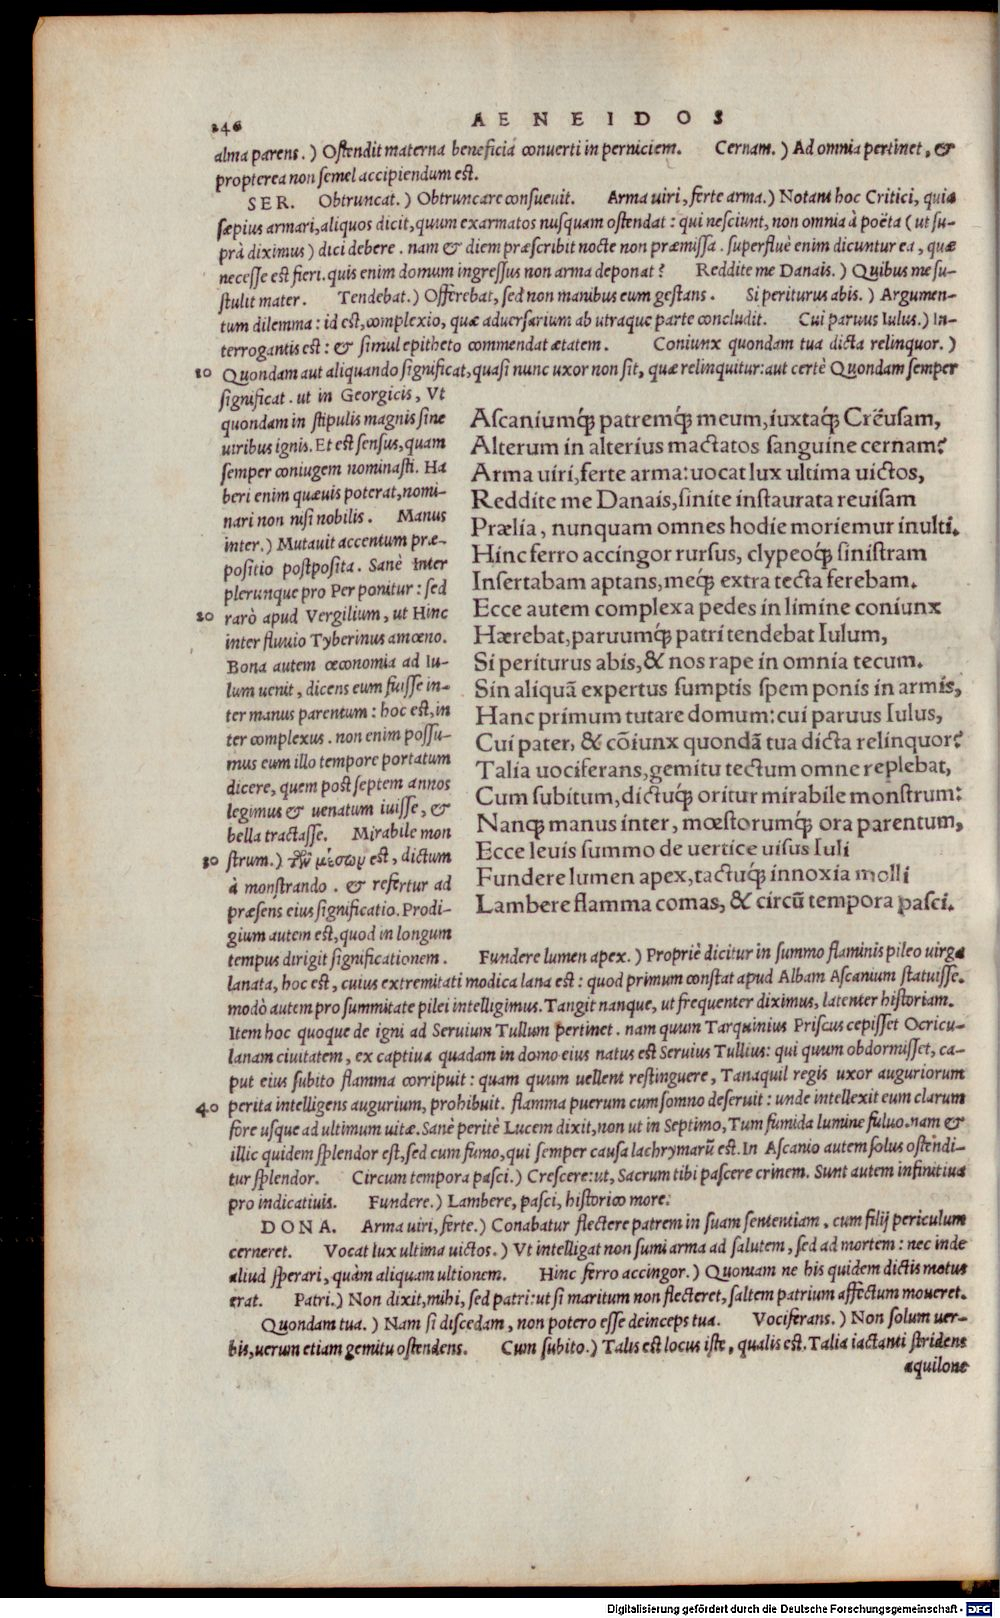 246
AENEIDOS
alma parens.) Ostendit materna beneficia conuerti in perniciem. Cernam.) Ad omnia pertinet, &
propterea non semel accipiendum est.
SER. Obtruncat.) Obtruncare consueuit. Arma uiri, ferte arma.) Notant hoc Critici, quia
sæpius armari, aliquos dicit, quum exarmatos nusquam ostendat: qui nesciunt, non omnia à poëta (ut su-
prà diximus) dici debere. nam & diem præscribit nocte non præmissa. superfluè enim dicuntur ea, quæ
necesse est fieri. quis enim domum ingressus non arma deponat? Reddite me Danais.) Quibus me su-
stulit mater. Tendebat.) Offerebat, sed non manibus eum gestans. Si periturus abis.) Argumen-
tum dilemma: id est, complexio, quæ aduersarium ab utraque parte concludit. Cui paruus Iulus.) In-
terrogantis est: & simul epitheto commendat ætatem. Coniunx quondam tua dicta relinquor.)
10 Quondam aut aliquando significat, quasi nunc uxor non sit, quæ relinquitur: aut certè Quondam semper
significat. ut in Georgicis, Vt
quondam in stipulis magnis sine
uiribus ignis. Et est sensus, quam
semper coniugem nominasti. Ha
beri enim quæuis poterat, nomi-
nari non nisi nobilis. Manus
inter.) Mutauit accentum præ-
positio postposita. Sanè Inter
plerunque pro Per ponitur: sed
20 rarò apud Vergilium, ut Hinc
inter fluuio Tyberinus amœno.
Bona autem œconomia ad Iu-
lum uenit, dicens eum fuisse in-
ter manus parentum: hoc est, in
ter complexus. non enim possu-
mus eum illo tempore portatum
dicere, quem post septem annos
legimus & uenatum iuisse, &
bella tractasse. Mirabile mon
30 strum.) τῶν μέσων est, dictum
à monstrando. & refertur ad
præsens eius significatio. Prodi-
gium autem est, quod in longum
tempus dirigit significationem.
Ascaniumq́; patremq́; meum, iuxtaq́; Crëusam,
Alterum in alterius mactatos sanguine cernam?
Arma uiri, ferte arma: uocat lux ultima uictos,
Reddite me Danais, sinite instaurata reuisam
Prælia, nunquam omnes hodie moriemur inulti.
Hinc ferro accingor rursus, clypeoq́; sinistram
Insertabam aptans, meq́; extra tecta ferebam.
Ecce autem complexa pedes in limine coniunx
Hærebat, paruumq́; patri tendebat Iulum,
Si periturus abis, & nos rape in omnia tecum.
Sin aliquā expertus sumptis spem ponis in armis,
Hanc primum tutare domum: cui paruus Iulus,
Cui pater, & cōiunx quondā tua dicta relinquor?
Talia uociferans, gemitu tectum omne replebat,
Cum subitum, dictuq́; oritur mirabile monstrum:
Nanq; manus inter, mœstorumq́; ora parentum,
Ecce leuis summo de uertice uisus Iuli
Fundere lumen apex, tactuq́; innoxia molli
Lambere flamma comas, & circū tempora pasci.
Fundere lumen apex.) Propriè dicitur in summo flaminis pileo uirga
lanata, hoc est, cuius extremitati modica lana est: quod primum constat apud Albam Ascanium statuisse.
modò autem pro summitate pilei intelligimus. Tangit nanque, ut frequenter diximus, latenter historiam.
Item hoc quoque de igni ad Seruium Tullum pertinet. nam quum Tarquinius Priscus cepisset Ocricu-
lanam ciuitatem, ex captiua quadam in domo eius natus est Seruius Tullius: qui quum obdormisset, ca-
put eius subito flamma corripuit: quam quum uellent restinguere, Tanaquil regis uxor auguriorum
40 perita intelligens augurium, prohibuit. flamma puerum cum somno deseruit: unde intellexit eum clarum
fore usque ad ultimum uitæ. Sanè peritè Lucem dixit, non ut in Septimo, Tum fumida lumine fuluo. nam &
illic quidem splendor est, sed cum fumo, qui semper causa lachrymarū est. In Ascanio autem solus ostendi-
tur splendor. Circum tempora pasci.) Crescere: ut, Sacrum tibi pascere crinem. Sunt autem infinitiua
pro indicatiuis. Fundere.) Lambere, pasci, historico more.
DONA. Arma uiri, ferte.) Conabatur flectere patrem in suam sententiam, cum filij periculum
cerneret. Vocat lux ultima uictos.) Vt intelligat non sumi arma ad salutem, sed ad mortem: nec inde
aliud sperari, quàm aliquam ultionem. Hinc ferro accingor.) Quoniam ne his quidem dictis motus
erat. Patri.) Non dixit, mihi, sed patri: ut si maritum non flecteret, saltem patrium affectum moueret.
Quondam tua.) Nam si discedam, non potero esse deinceps tua. Vociferans.) Non solum uer-
bis, uerum etiam gemitu ostendens. Cum subito.) Talis est locus iste, qualis est. Talia iactanti stridens
aquilone
Digitalisierung gefördert durch die Deutsche Forschungsgemeinschaft - DFG